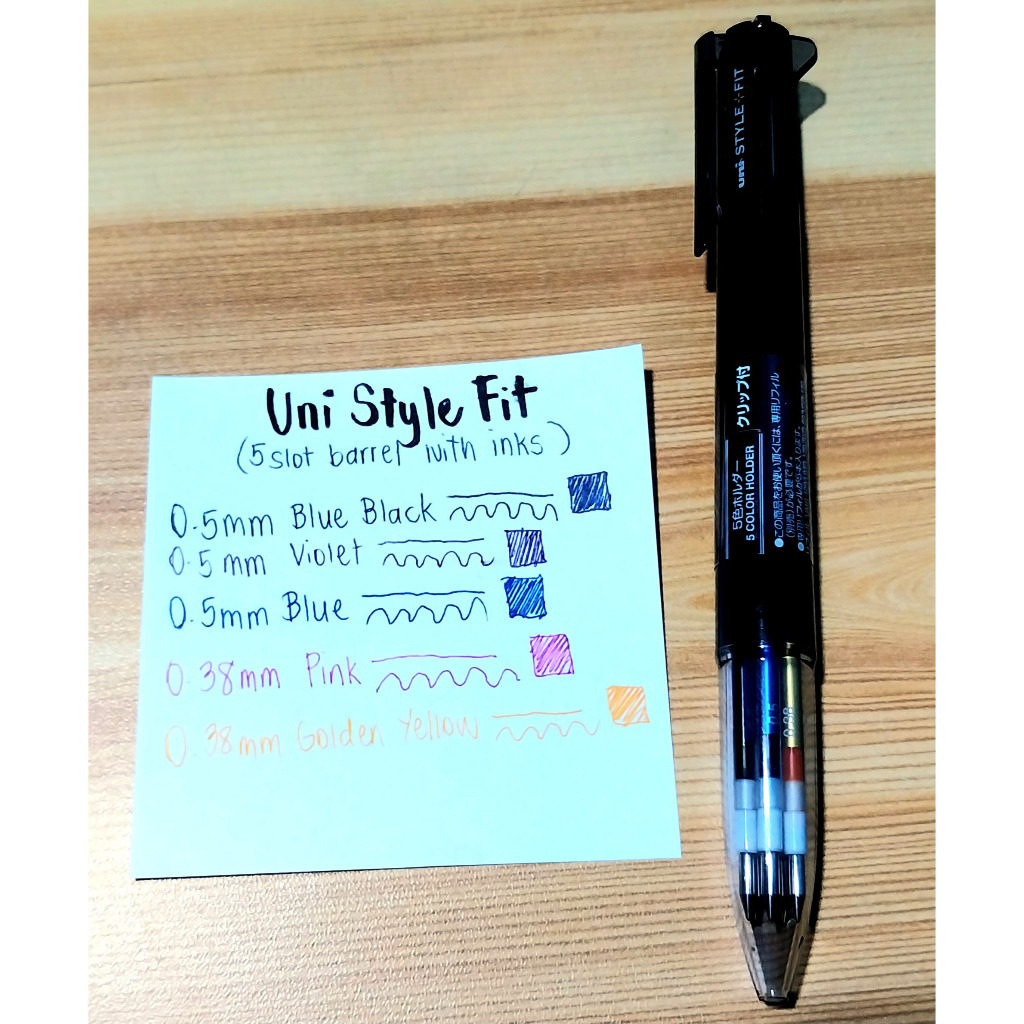 Uni Style Fit
(5 slot barrel with inks)
0.5mm Blue Black
0.5mm Violet
0.5mm Blue
0.38mm Pink
0.38mm Golden Yellow
uni STYLE FIT
クリップ付
5色ホルダー
5 COLOR HOLDER
●この商品をお使い頂くには、専用リフィル
(別売)が必要です。
0.5
0.38